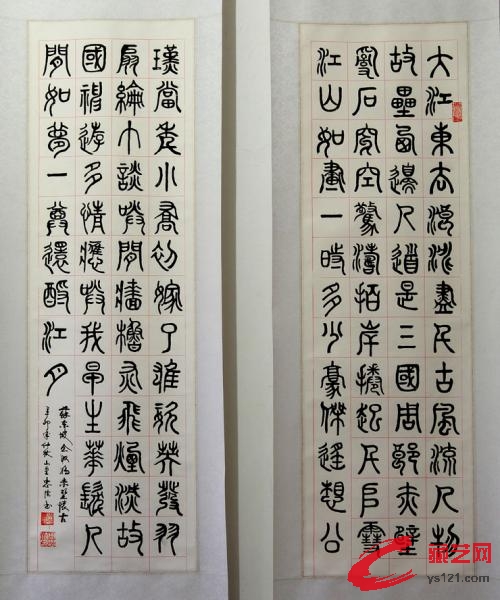 大江東去浪淘盡千古風流人物
故壘西邊人道是三國周郎赤壁
亂石穿空驚濤拍岸捲起千堆雪
江山如畫一時多少豪傑遙想公
瑾當年小喬初嫁了雄姿英發羽
扇綸巾談笑間牆櫓灰飛煙滅故
國神遊多情應笑我早生華髮人
間如夢一尊還酹江月
蘇東坡念奴嬌赤壁懷古
辛卯年仲秋
藏艺网
ys121.com